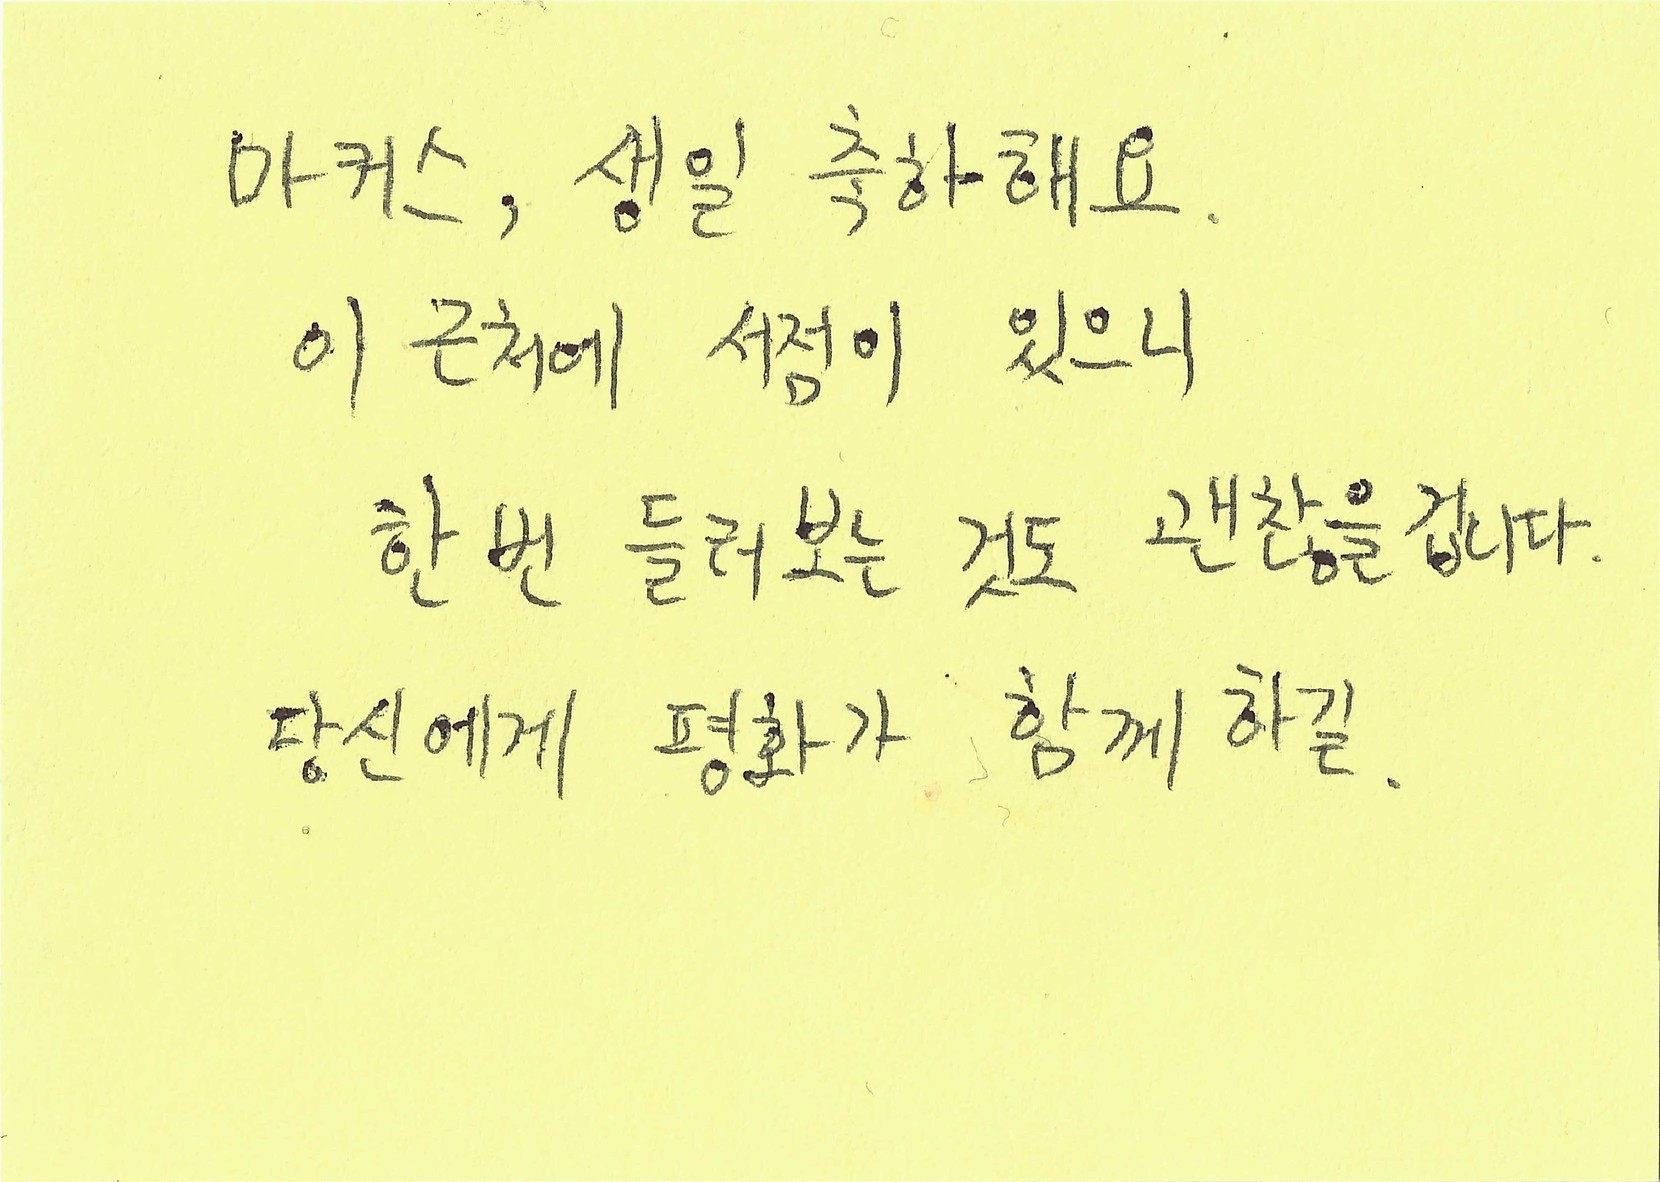 마커스, 생일 축하해요.
이 근처에 서점이 있으니
한 번 들러보는 것도 괜찮을 겁니다.
당신에게 평화가 함께 하길.